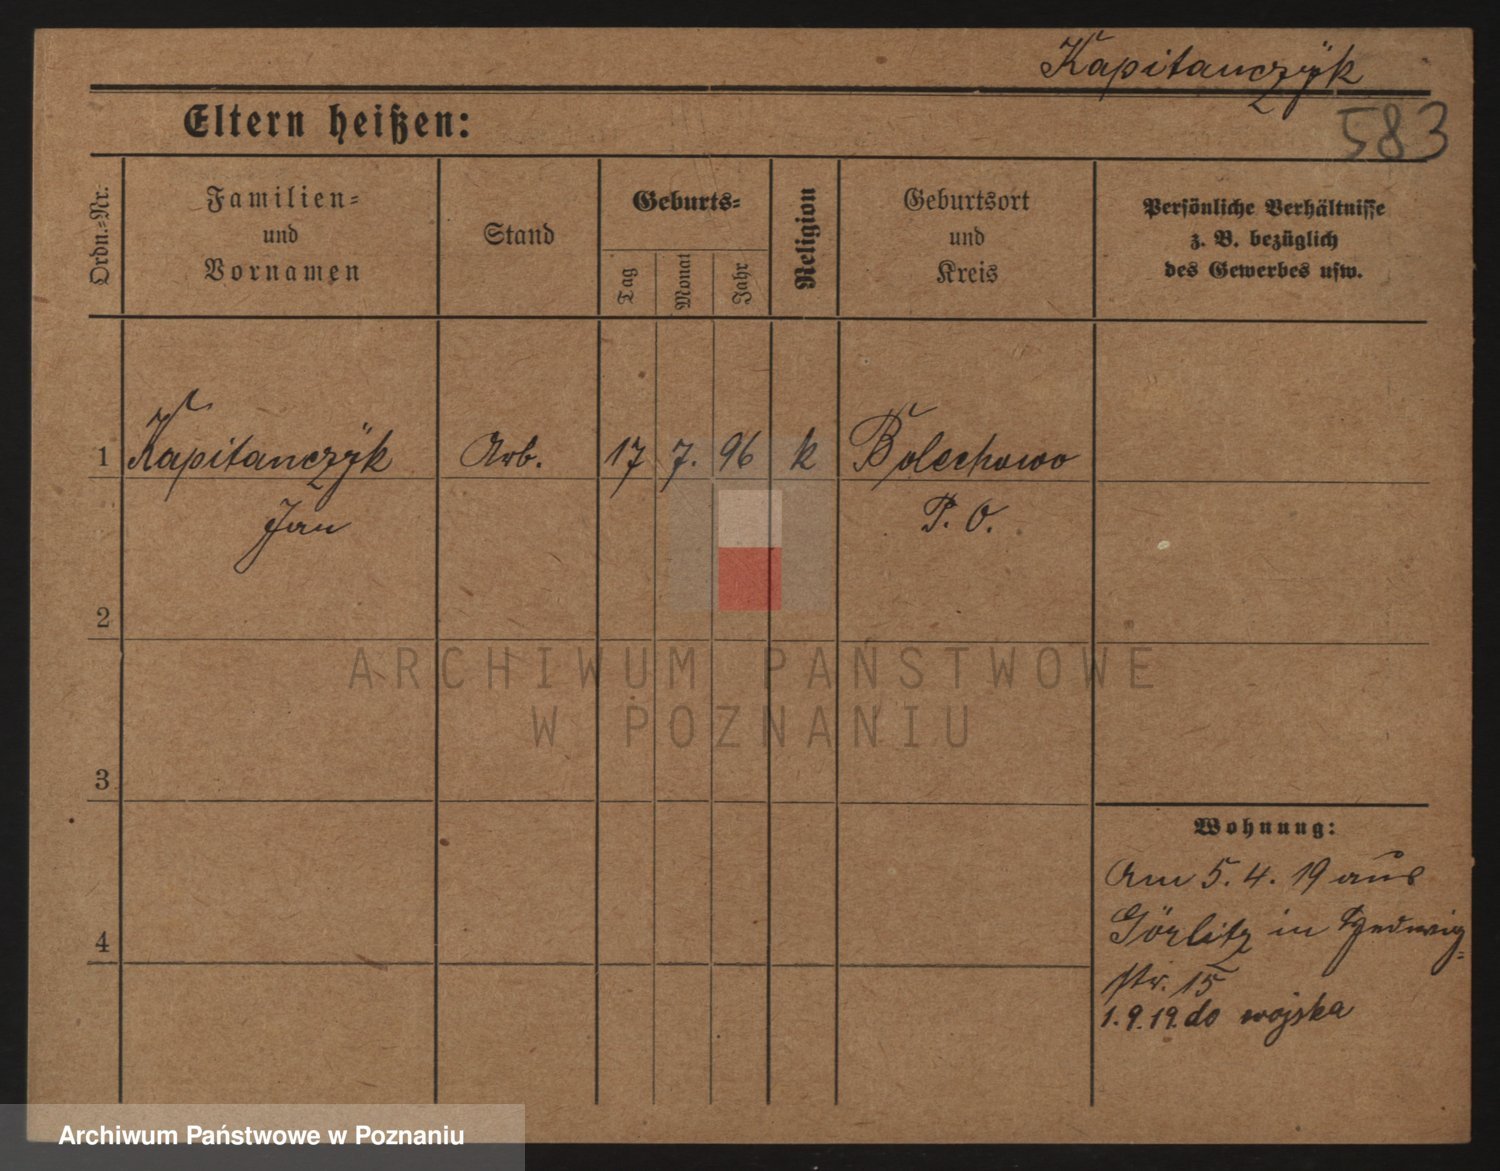 Kapitanczÿk
583
Eltern heißen:
Ordn.-Nr.
Familien-
und
Vornamen
Stand
Geburts-
Tag
Monat
Jahr
Religion
Geburtsort
und
Kreis
Persönliche Verhältnisse
z. B. bezüglich
des Gewerbes usw.
1 Kapitanczÿk Arb. 17 7. 96 k Bolechowo
Jan P. O.
2
ARCHIWUM PAŃSTWOWE
W POZNANIU
3
Wohnung:
Am 5. 4. 19 aus
Görlitz in Hedwig-
4
str. 15
1.9.19. do wojska
Archiwum Państwowe w Poznaniu